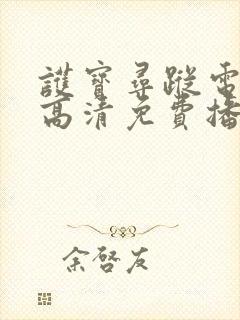 護寶尋蹤電
高清免費播
余啓友